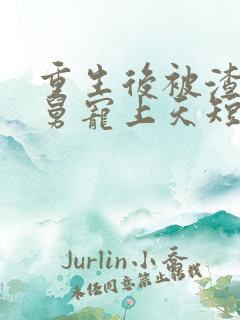 重生後被渣
舅寵上天短
Jurlin小喬
未经同意禁止转载